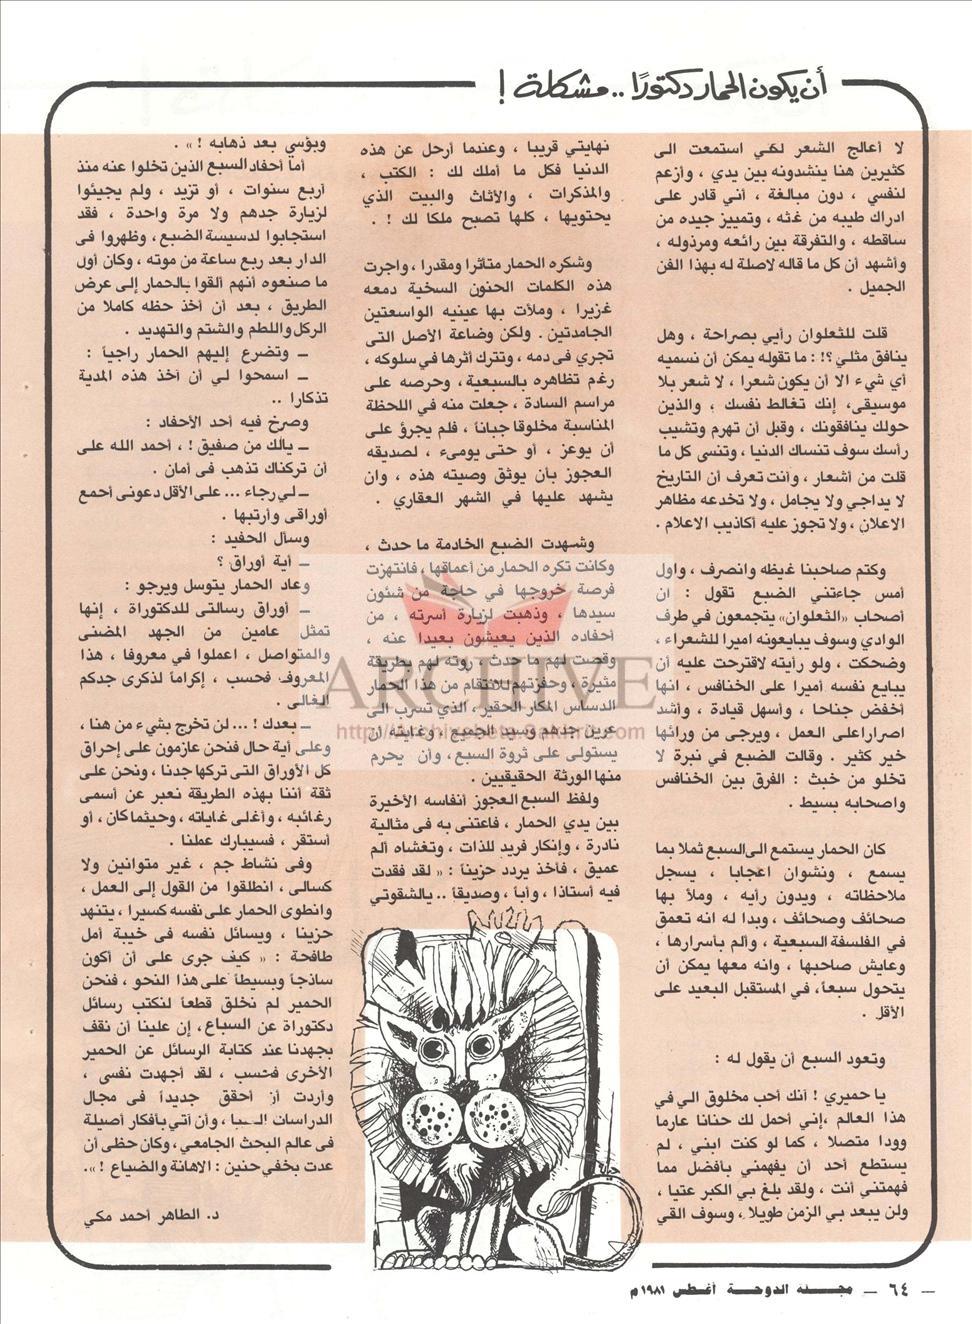 أن يكون الحمار دكتورًا .. مشكلة !
لا أعالج الشعر لكني استمعت الى
كثيرين هنا ينشدونه بين يدي ، وأزعم
لنفسي ، دون مبالغة ، أني قادر على
ادراك طيبه من غثه ، وتمييز جيده من
ساقطه ، والتفرقة بين رائعه ومرذوله ،
وأشهد أن كل ما قاله لاصلة له بهذا الفن
الجميل .
قلت للثعلوان رأيي بصراحة ، وهل
ينافق مثلي ؟! : ما تقوله يمكن أن نسميه
أي شيء الا أن يكون شعرا ، لا شعر بلا
موسيقى، إنك تغالط نفسك ، والذين
حولك ينافقونك ، وقبل أن تهرم وتشيب
رأسك سوف تنساك الدنيا ، وتنسى كل ما
قلت من أشعار ، وأنت تعرف أن التاريخ
لا يداجي ولا يجامل ، ولا تخدعه مظاهر
الاعلان ، ولا تجوز عليه أكاذيب الاعلام .
وكتم صاحبنا غيظه وانصرف ، واول
أمس جاءتني الضبع تقول : ان
أصحاب «الثعلوان» يتجمعون في طرف
الوادي وسوف يبايعونه اميرا للشعراء ،
وضحكت ، ولو رأيته لاقترحت عليه أن
يبايع نفسه أميرا على الخنافس ، انها
أخفض جناحا ، وأسهل قيادة ، وأشد
اصرارا على العمل ، ويرجى من ورائها
خير كثير . وقالت الضبع في نبرة لا
تخلو من خبث : الفرق بين الخنافس
واصحابه بسيط .
كان الحمار يستمع الى السبع ثملا بما
يسمع ، ونشوان اعجابا ، يسجل
ملاحظاته ، ويدون رأيه ، وملأ بها
صحائف وصحائف ، وبدا له انه تعمق
في الفلسفة السبعية ، وألم بأسرارها ،
وعايش صاحبها ، وانه معها يمكن أن
يتحول سبعاً، في المستقبل البعيد على
الأقل .
وتعود السبع أن يقول له :
يا حميري ! أنك أحب مخلوق الي في
هذا العالم ،إني أحمل لك حنانا عارما
وودا متصلا ، كما لو كنت ابني ، لم
يستطع أحد أن يفهمني بأفضل مما
فهمتني أنت ، ولقد بلغ بي الكبر عتيا ،
ولن يبعد بي الزمن طويلا ، وسوف القي
نهايتي قريبا ، وعندما أرحل عن هذه
الدنيا فكل ما أملك لك : الكتب ،
والمذكرات ، والأثاث والبيت الذي
يحتويها ، كلها تصبح ملكا لك ! .
وشكره الحمار متأثرا ومقدرا ، واجرت
هذه الكلمات الحنون السخية دمعه
غزيرا ، وملأت بها عينيه الواسعتين
الجامدتين . ولكن وضاعة الأصل التى
تجري فى دمه ، وتترك أثرها في سلوكه ،
رغم تظاهره بالسبعية ، وحرصه على
مراسم السادة ، جعلت منه في اللحظة
المناسبة مخلوقا جباناً ، فلم يجرؤ على
أن يوعز ، أو حتى يومىء ، لصديقه
العجوز بأن يوثق وصيته هذه ، وان
يشهد عليها في الشهر العقاري .
وشهدت الضبع الخادمة ما حدث ،
وكانت تكره الحمار من أعماقها ، فانتهزت
فرصة خروجها في حاجة من شئون
سيدها ، وذهبت لزيارة أسرته ، من
أحفاده الذين يعيشون بعيدا عنه ،
وقصت لهم ما حدث ، روته لهم بطريقة
مثيرة ، وحفزتهم للانتقام من هذا الحمار
الدساس المكار الحقير ، الذي تسرب الى
عرين جدهم وسيد الجميع ، وغايته أن
يستولى على ثروة السبع ، وأن يحرم
منها الورثة الحقيقيين .
ولفظ السبع العجوز أنفاسه الأخيرة
بين يدي الحمار ، فاعتنى به فى مثالية
نادرة ، وإنكار فريد للذات ، وتغشاه ألم
عميق ، فأخذ يردد حزيناً : « لقد فقدت
فيه أستاذا ، وأباً ، وصديقاً .. يالشقوتي
وبؤسي بعد ذهابه ! » .
أما أحفاد السبع الذين تخلوا عنه منذ
أربع سنوات ، أو تزيد ، ولم يجيئوا
لزيارة جدهم ولا مرة واحدة ، فقد
استجابوا لدسيسة الضبع ، وظهروا فى
الدار بعد ربع ساعة من موته ، وكان أول
ما صنعوه أنهم ألقوا بالحمار إلى عرض
الطريق ، بعد أن أخذ حظه كاملا من
الركل واللطم والشتم والتهديد .
ــ وتضرع إليهم الحمار راجياً :
ــ اسمحوا لي أن أخذ هذه المدية
تذكارا ..
وصرخ فيه أحد الأحفاد :
ــ يالك من صفيق ! ، أحمد الله على
أن تركناك تذهب فى أمان .
ــ لي رجاء ... على الأقل دعونى أجمع
أوراقى وأرتبها .
وسأل الحفيد :
ــ أية أوراق ؟
وعاد الحمار يتوسل ويرجو :
ــ أوراق رسالتى للدكتوراة ، إنها
تمثل عامين من الجهد المضنى
والمتواصل ، اعملوا في معروفا ، هذا
المعروف فحسب ، إكراماً لذكرى جدكم
الغالى .
ــ بعدك ! ... لن تخرج بشيء من هنا ،
وعلى أية حال فنحن عازمون على إحراق
كل الأوراق التى تركها جدنا ، ونحن على
ثقة أننا بهذه الطريقة نعبر عن أسمى
رغائبه ، وأغلى غاياته ، وحيثما كان ، أو
أستقر ، فسيبارك عملنا .
وفى نشاط جم ، غير متوانين ولا
كسالى ، انطلقوا من القول إلى العمل ،
وانطوى الحمار على نفسه كسيرا ، يتنهد
حزينا ، ويسائل نفسه فى خيبة أمل
طافحة : « كيف جرى على أن أكون
ساذجاً وبسيطاً على هذا النحو ، فنحن
الحمير لم نخلق قطعاً لنكتب رسائل
دكتوراة عن السباع ، إن علينا أن نقف
بجهدنا عند كتابة الرسائل عن الحمير
الأخرى فحسب ، لقد أجهدت نفسى ،
وأردت أن أحقق جديداً فى مجال
الدراسات العليا ، وأن آتي بأفكار أصيلة
فى عالم البحث الجامعي ، وكان حظى أن
عدت بخفي حنين : الاهانة والضياع ! ».
د. الطاهر أحمد مكي
ARCHIVE
ــ ٦٤ ــ مجـــلـة الدوحـــة أغطس ١٩٨١م